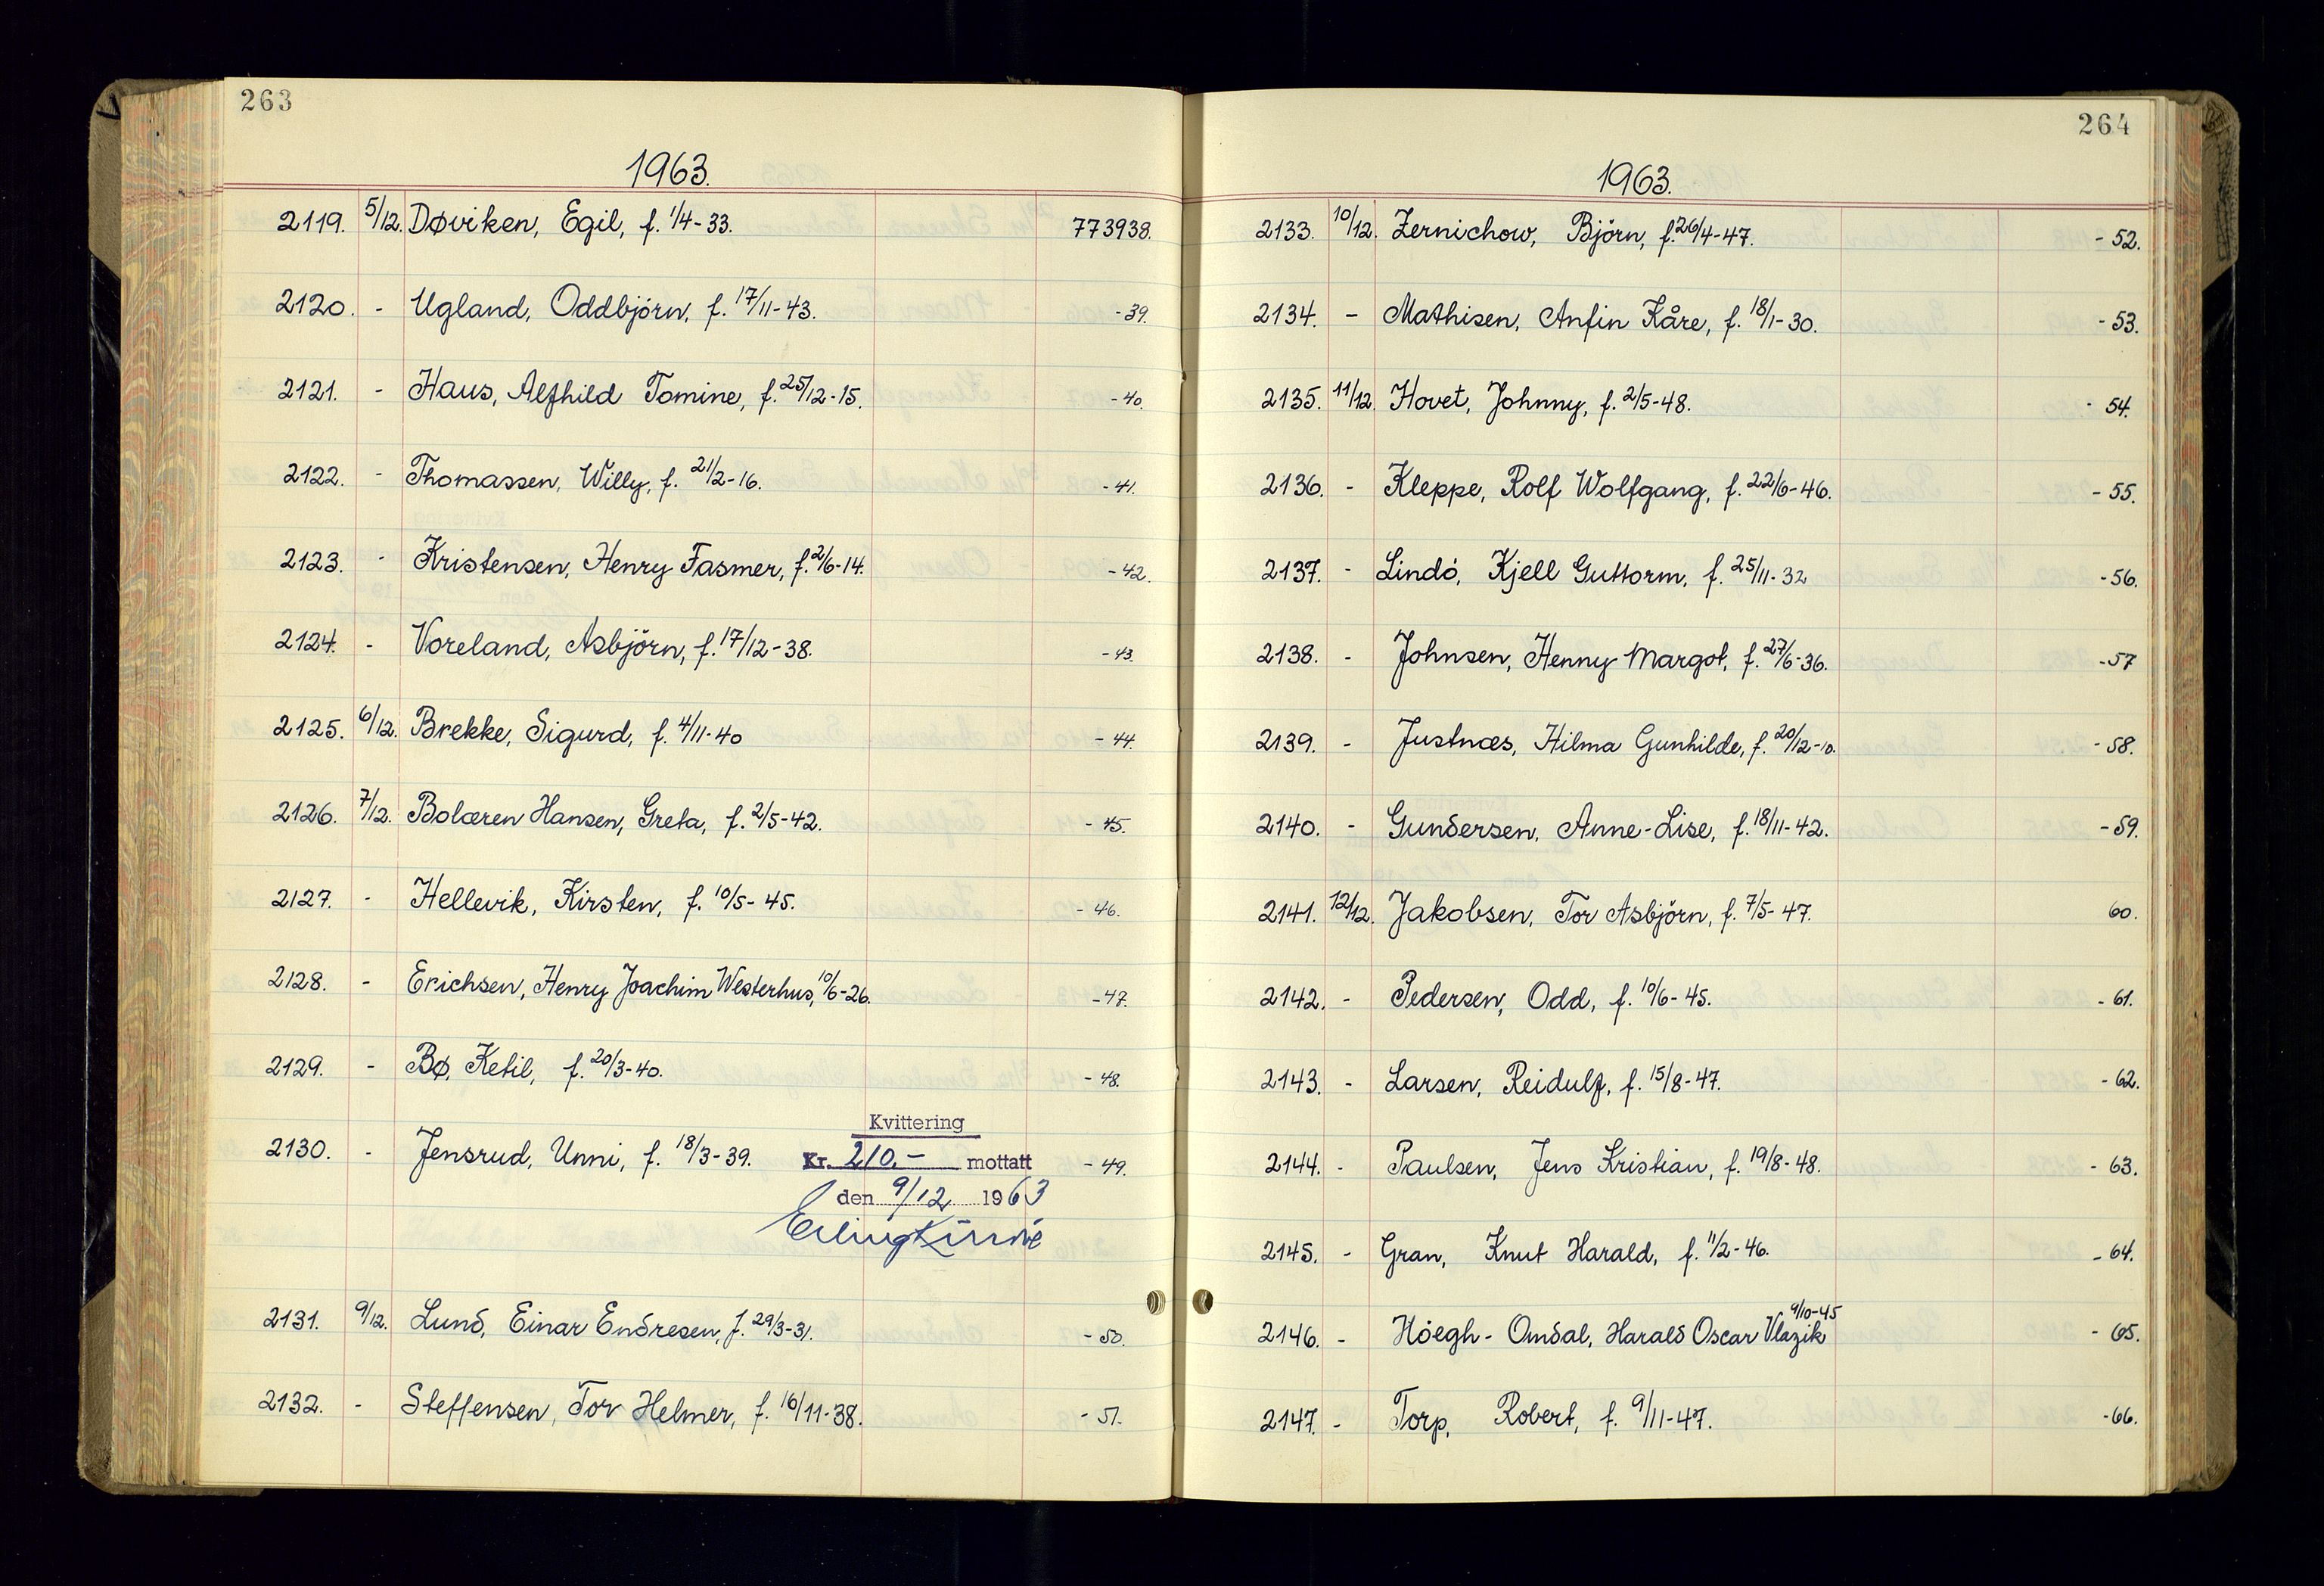 263
1963.
2119. 5/12. Døviken, Egil, f. 1/4-33. 773938.
2120. - Ugland, Oddbjörn, f. 17/11-43. -39.
2121. - Haus, Alfhild Tomine, f. 25/12-15. -40.
2122. - Thomassen, Willy, f. 21/2-16. -41.
2123. - Kristensen, Henry Fasmer, f. 2/6-14. -42.
2124. - Voreland, Asbjörn, f. 17/12-38. -43.
2125. 6/12. Brekke, Sigurd, f. 4/11-40 -44.
2126. 7/12. Bolæren Hansen, Greta, f. 2/5-42. -45.
2127. - Hellevik, Kirsten, f. 10/5-45. -46.
2128. - Erichsen, Henry Joachim Westerhus, 10/6-26. -47.
2129. - Bø, Ketil, f. 20/3-40. -48.
Kvittering
2130. - Jensrud, Unni, f. 18/3-39. Kr. 210.- mottatt -49.
den 9/12 1963
2131. 9/12. Lund, Einar Endresen, f. 29/3-31. -50.
2132. - Steffensen, Tor Helmer, f. 16/11-38. -51.
264
1963.
2133. 10/12. Zernichow, Björn, f. 26/4-47. -52.
2134. - Mathisen, Anfin Kåre, f. 18/1-30. -53.
2135. 11/12. Hovet, Johnny, f. 2/5-48. - 54.
2136. - Kleppe, Rolf Wolfgang, f. 22/6-46. -55.
2137. - Lindó, Kjell Guttorm, f. 25/11-32 -56.
2138. - Johnsen, Henny Margot, f. 27/6-36. -57
2139. - Justnæs, Hilma Gunhilde, f. 20/12-10. -58.
2140. - Gundersen, Anne-Lise, f. 18/11-42. -59.
2141. 12/12. Jakobsen, Tor Asbjörn, f. 7/5-47. 60.
2142. - Pedersen, Odd, f. 10/6-45. -61.
2143. - Larsen, Reidulf, f. 15/8-47. -62.
2144. - Paulsen, Jens Kristian, f. 19/8-48. -63.
2145. - Gran, Knut Harald, f. 11/2-46. -64.
2146. - Höegh-Omdal, Harald Oscar Vlazik 9/10-45 -65.
2147. - Torp, Robert, f. 9/11-47. -66.